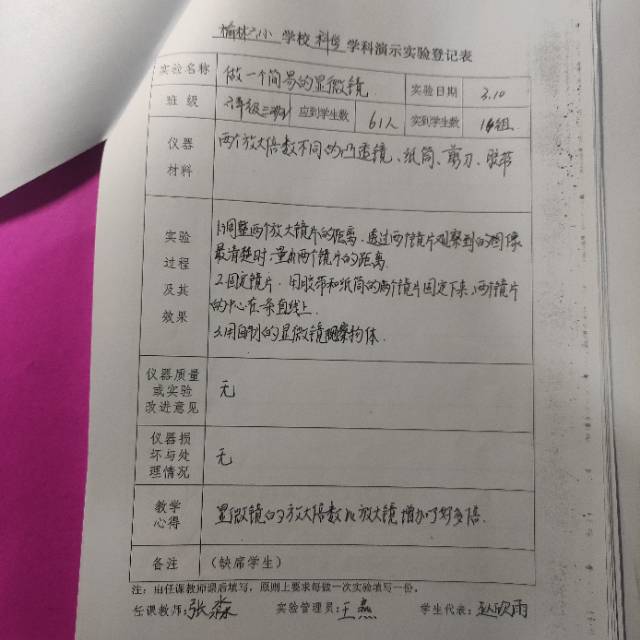 榆林六小 学校 科学 学科演示实验登记表
实验名称 做一个简易的显微镜 实验日期 3.10
班 级 六年级 应到学生数 61人 实到学生数 组
仪器材料 两个放大倍数不同的凸透镜、纸筒、剪刀、胶带
实验过程及其效果
1.调整两个放大镜片的距离.透过两个镜片观察到的图像
最清楚时:量出两个镜片的距离.
2.固定镜片.用胶带和纸筒的两个镜片固定下来,两个镜片
的中心在一条直线上.
3.用自制的显微镜观察物体.
仪器质量
或实验
改进意见
无
仪器损
坏与处
理情况
无
教学
心得
显微镜的放大倍数比放大镜增加了好多倍.
备注 (缺席学生)
注:由任课教师课后填写,原则上要求每做一次实验填写一份。
任课教师:张淼 实验管理员:王燕 学生代表:赵欣雨